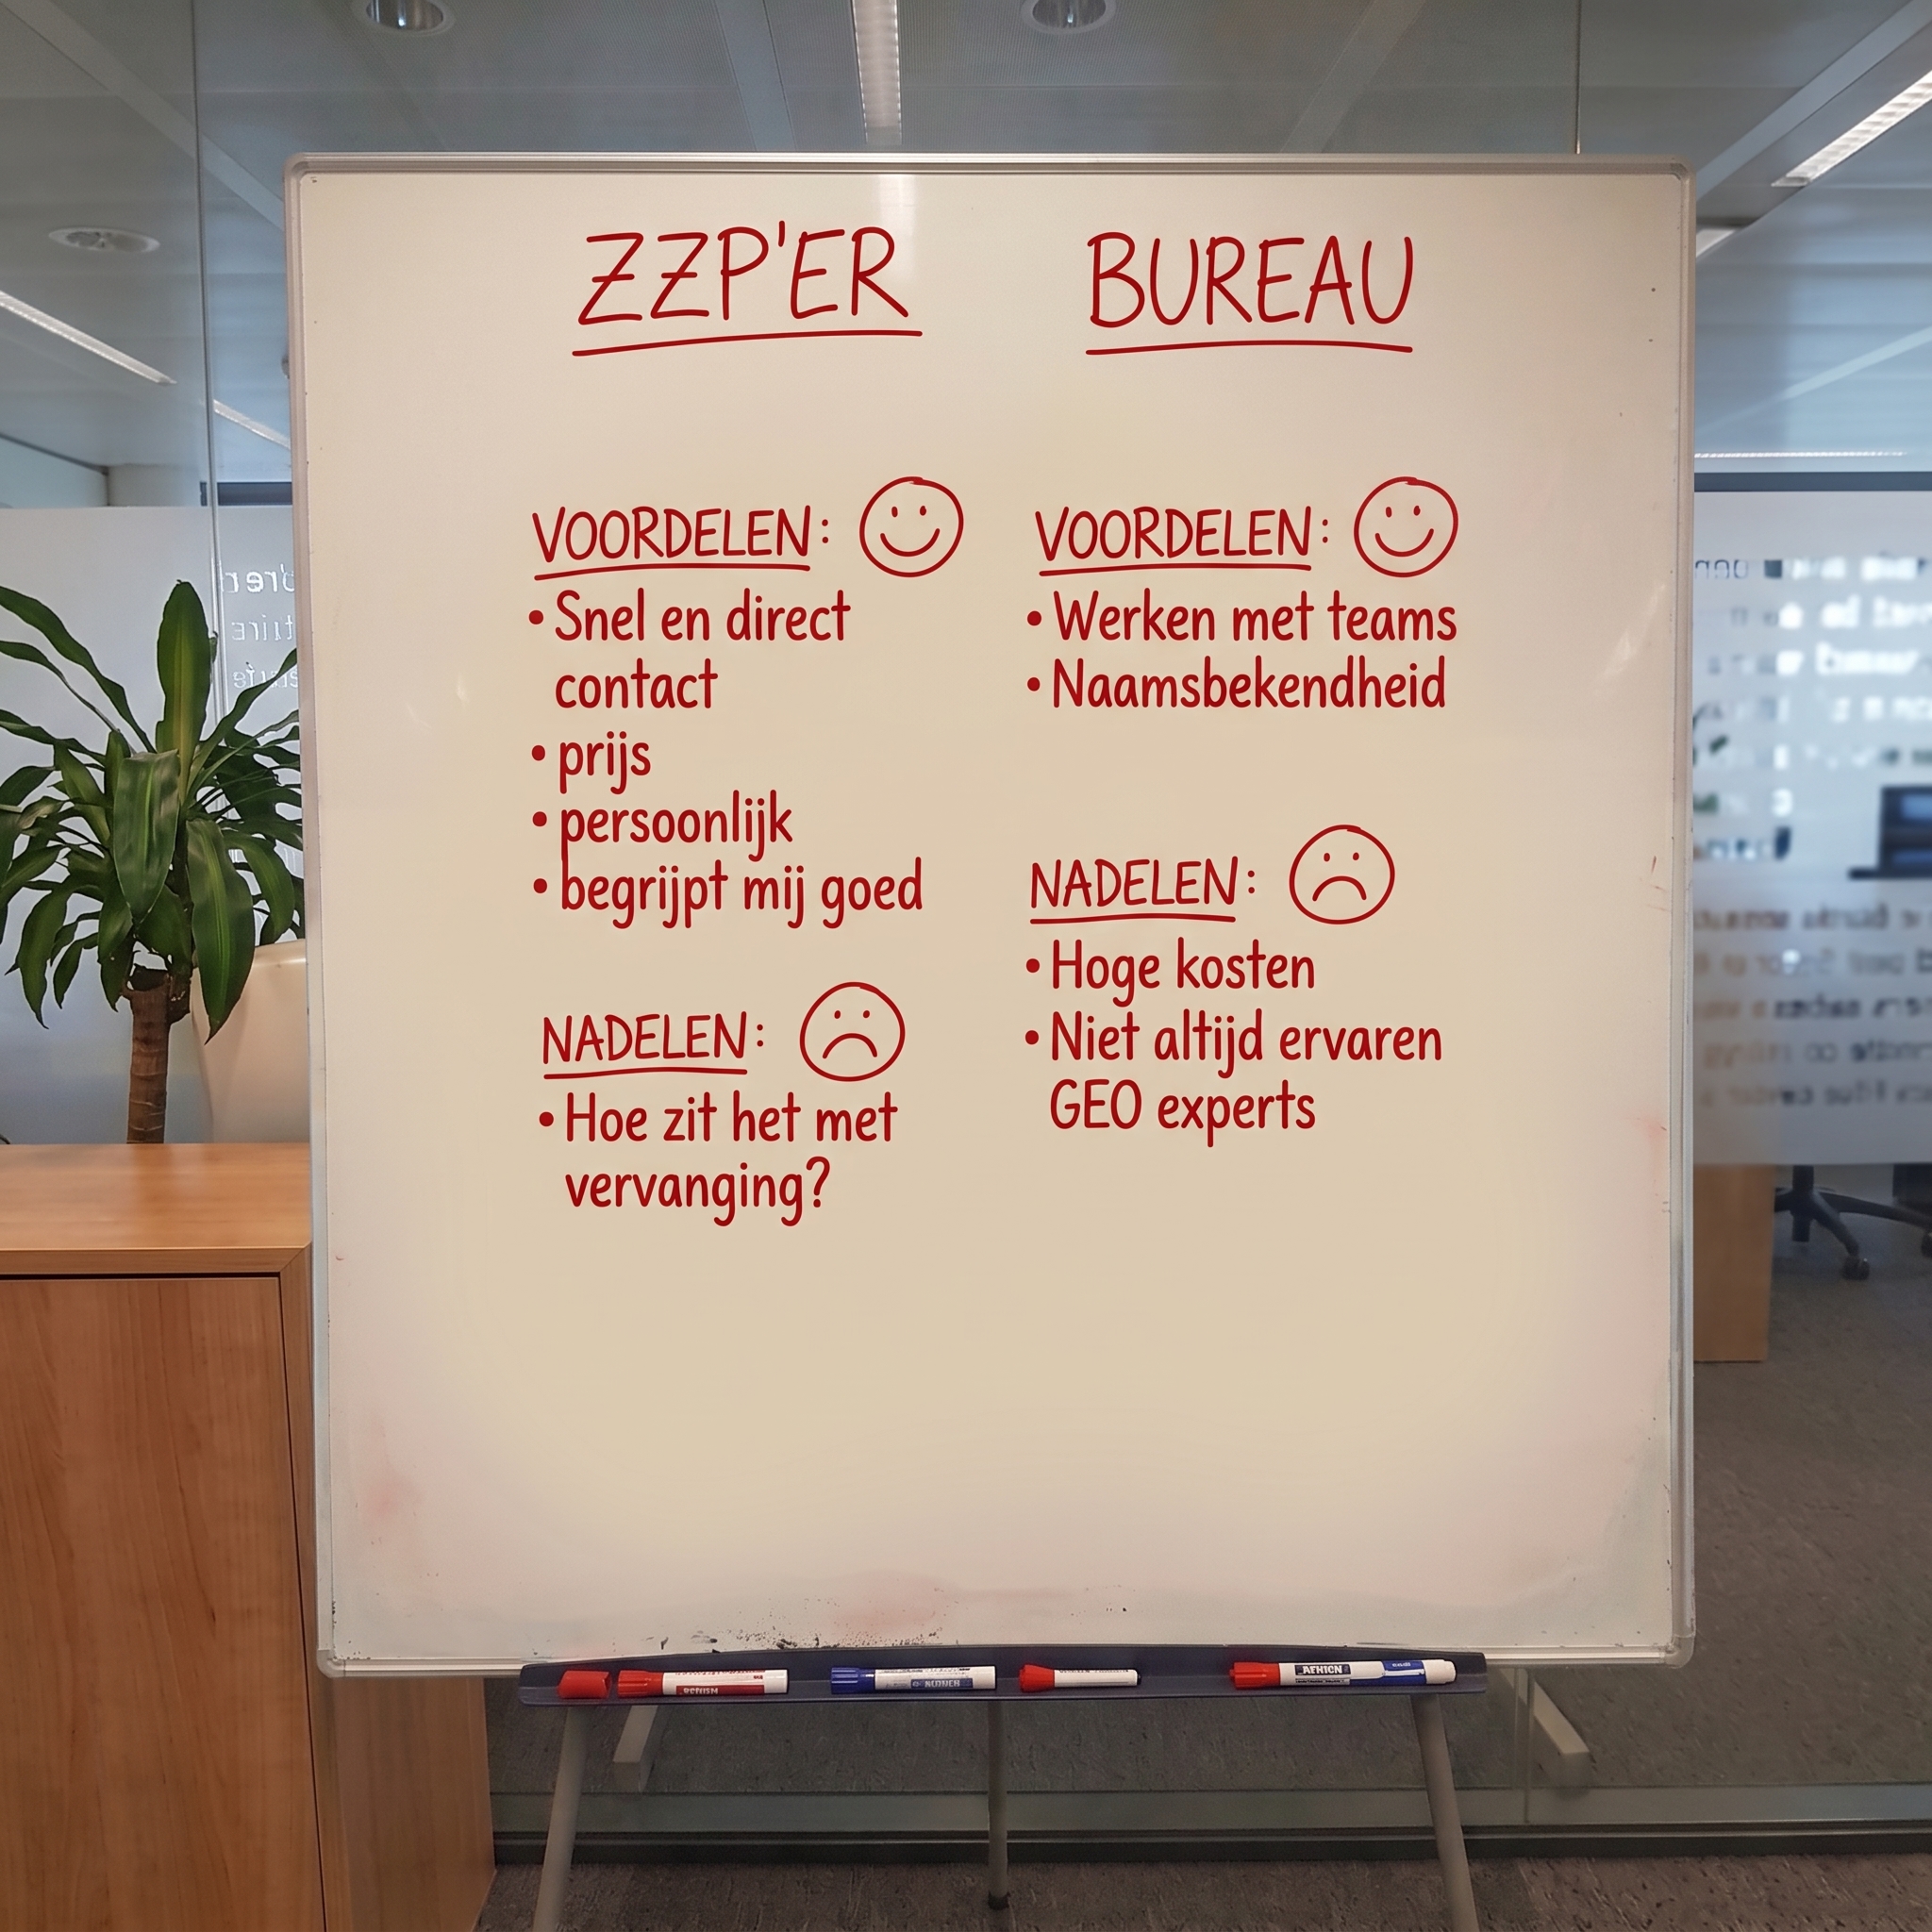 ZZP'ER
VOORDELEN:
• Snel en direct
contact
• prijs
• persoonlijk
• begrijpt mij goed
NADELEN:
• Hoe zit het met
vervanging?
BUREAU
VOORDELEN:
• Werken met teams
• Naamsbekendheid
NADELEN:
• Hoge kosten
• Niet altijd ervaren
GEO experts